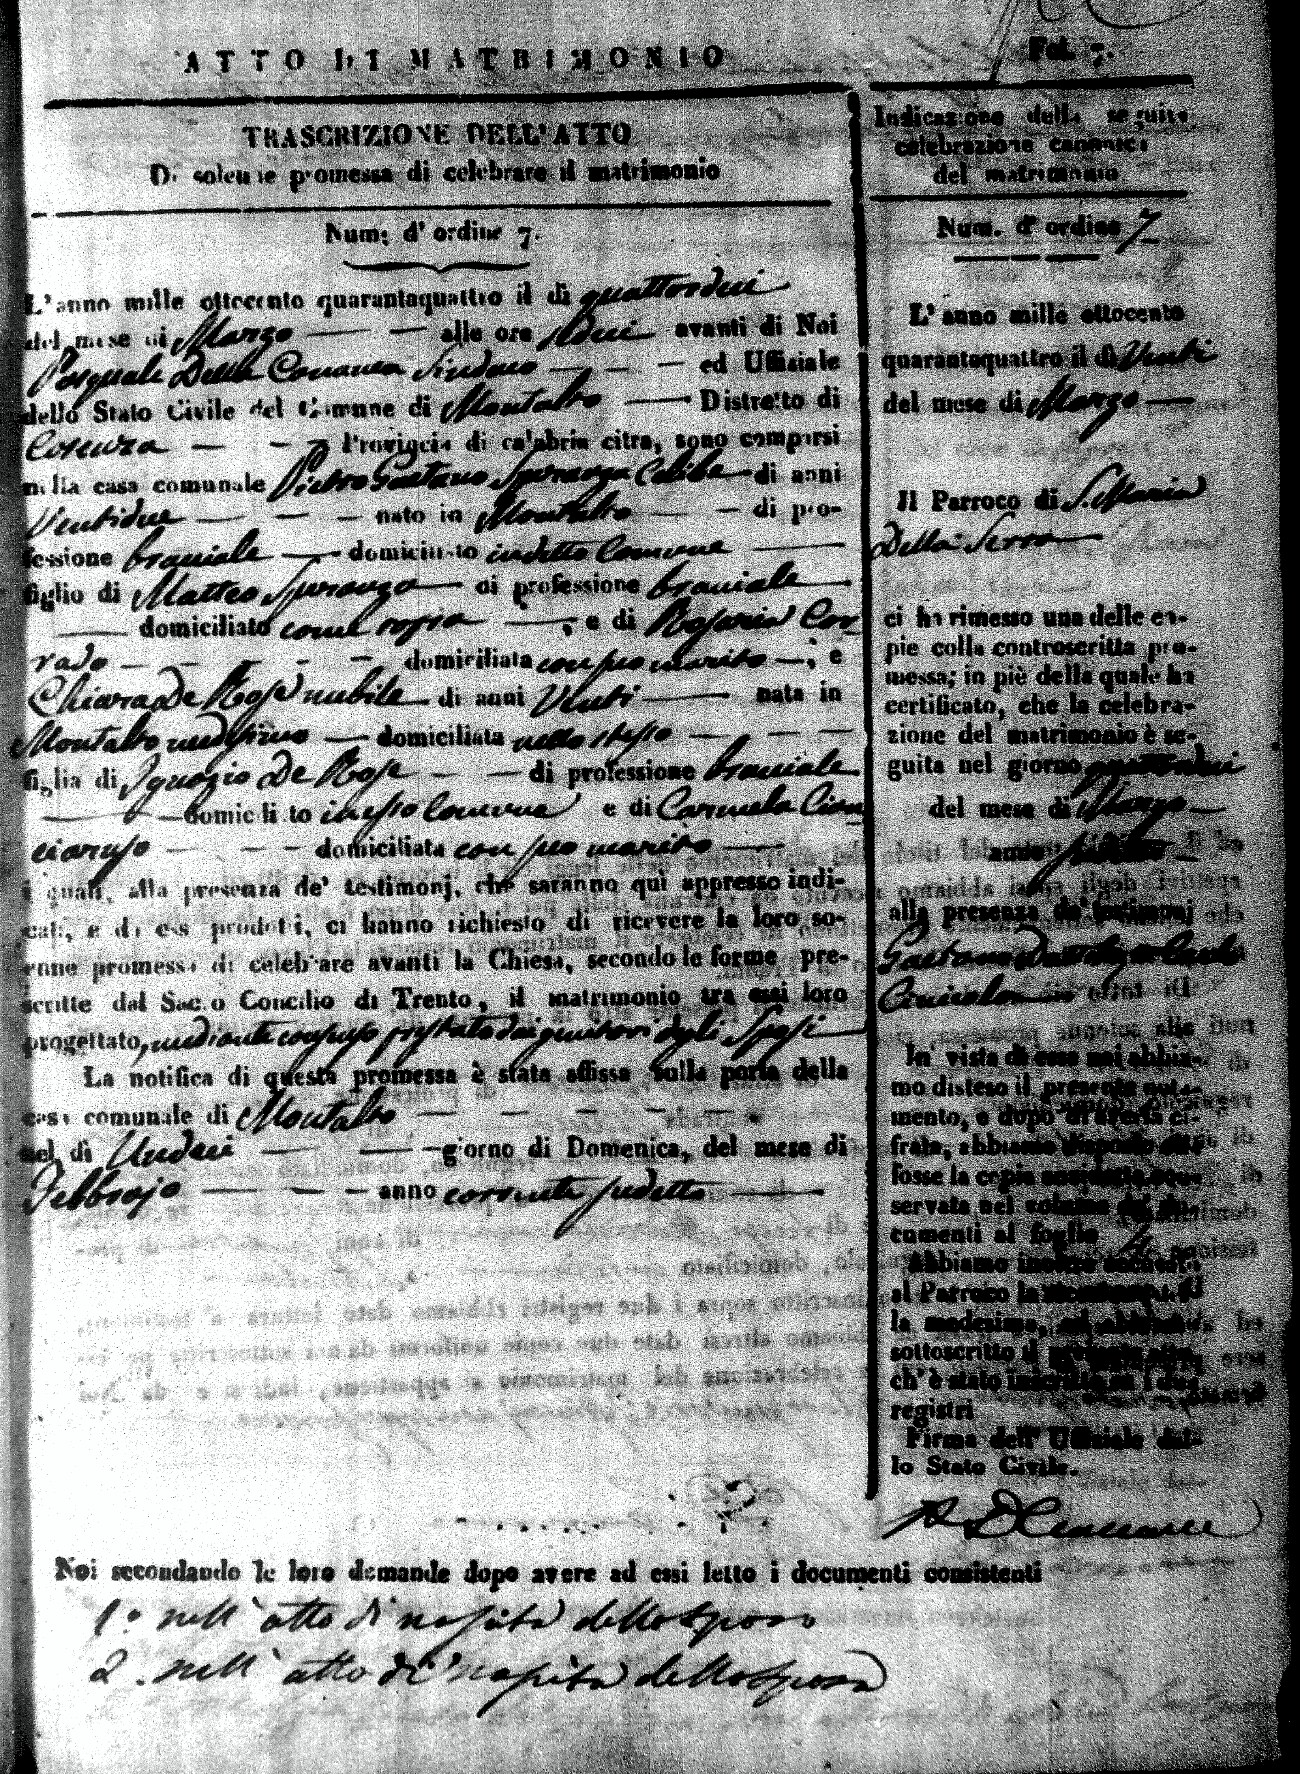 ATTO DI MATRIMONIO
Fol. 7.
TRASCRIZIONE DELL'ATTO
Di solenne promessa di celebrare il matrimonio
Num: d'ordine 7.
L'anno mille ottocento quarantaquattro il dì quattordici
del mese di Marzo — — alle ore sedici avanti di Noi
Pasquale Della Cananea Sindaco — — — ed Uffiziale
dello Stato Civile del Comune di Montalto — Distretto di
Cosenza — — Provincia di calabria citra, sono comparsi
nella casa comunale Pietro Gaetano Speranza Celibe — di anni
Ventidue — — — nato in Montalto — — di pro-
fessione bracciale — domiciliato in detto Comune —
figlio di Matteo Speranza — di professione bracciale —
— domiciliato come sopra —, e di Rosaria Cor
rado — — — — — domiciliata con suo marito —, e
Chiara De Rose nubile — di anni Venti — nata in
Montalto medesimo — domiciliata nello stesso — — —
figlia di Ignazio De Rose — — di professione bracciale
— domiciliato in esso Comune e di Carmela Cian
ciaruso — — — domiciliata con suo marito —
i quali, alla presenza de' testimonj, che saranno quì appresso indi-
cati, e da essi prodotti, ci hanno richiesto di ricevere la loro so-
lenne promessa di celebrare avanti la Chiesa, secondo le forme pre-
scritte dal Sacro Concilio di Trento, il matrimonio tra essi loro
progettato, mediante consenso prestato dai genitori degli Sposi —
La notifica di questa promessa è stata affissa sulla porta della
casa comunale di Montalto — — — — — —
nel dì Undeci — — giorno di Domenica, del mese di
Febbrajo — — — anno corrente sudetto —
Indicazione della seguita
celebrazione canonica
del matrimonio
Num. d'ordine 7
L'anno mille ottocento
quarantaquattro il dì Venti
del mese di Marzo —
Il Parroco di S. Maria
Della Serra —
ci ha rimesso una delle co-
pie colla controscritta pro-
messa; in piè della quale ha
certificato, che la celebra-
zione del matrimonio è se-
guita nel giorno quattordici
del mese di Marzo —
anno sudetto —
alla presenza de' testimonj
Gaetano
In vista di esse noi abbia-
mo disteso il presente nota-
mento, e dopo averla ci-
frata, abbiamo disposto che
fosse la copia anzidetta con-
servata nel volume dei do-
cumenti al foglio
Abbiamo inoltre accusato
al Parroco la ricevuta del
la medesima, ed abbiamo
sottoscritto il presente atto,
ch'è stato inscritto su i due
registri
Firma dell'Uffiziale del-
lo Stato Civile.
Noi secondando le loro demande dopo avere ad essi letto i documenti consistenti
1.° nell'atto di nascita dello Sposo
2. nell'atto di nascita della Sposa